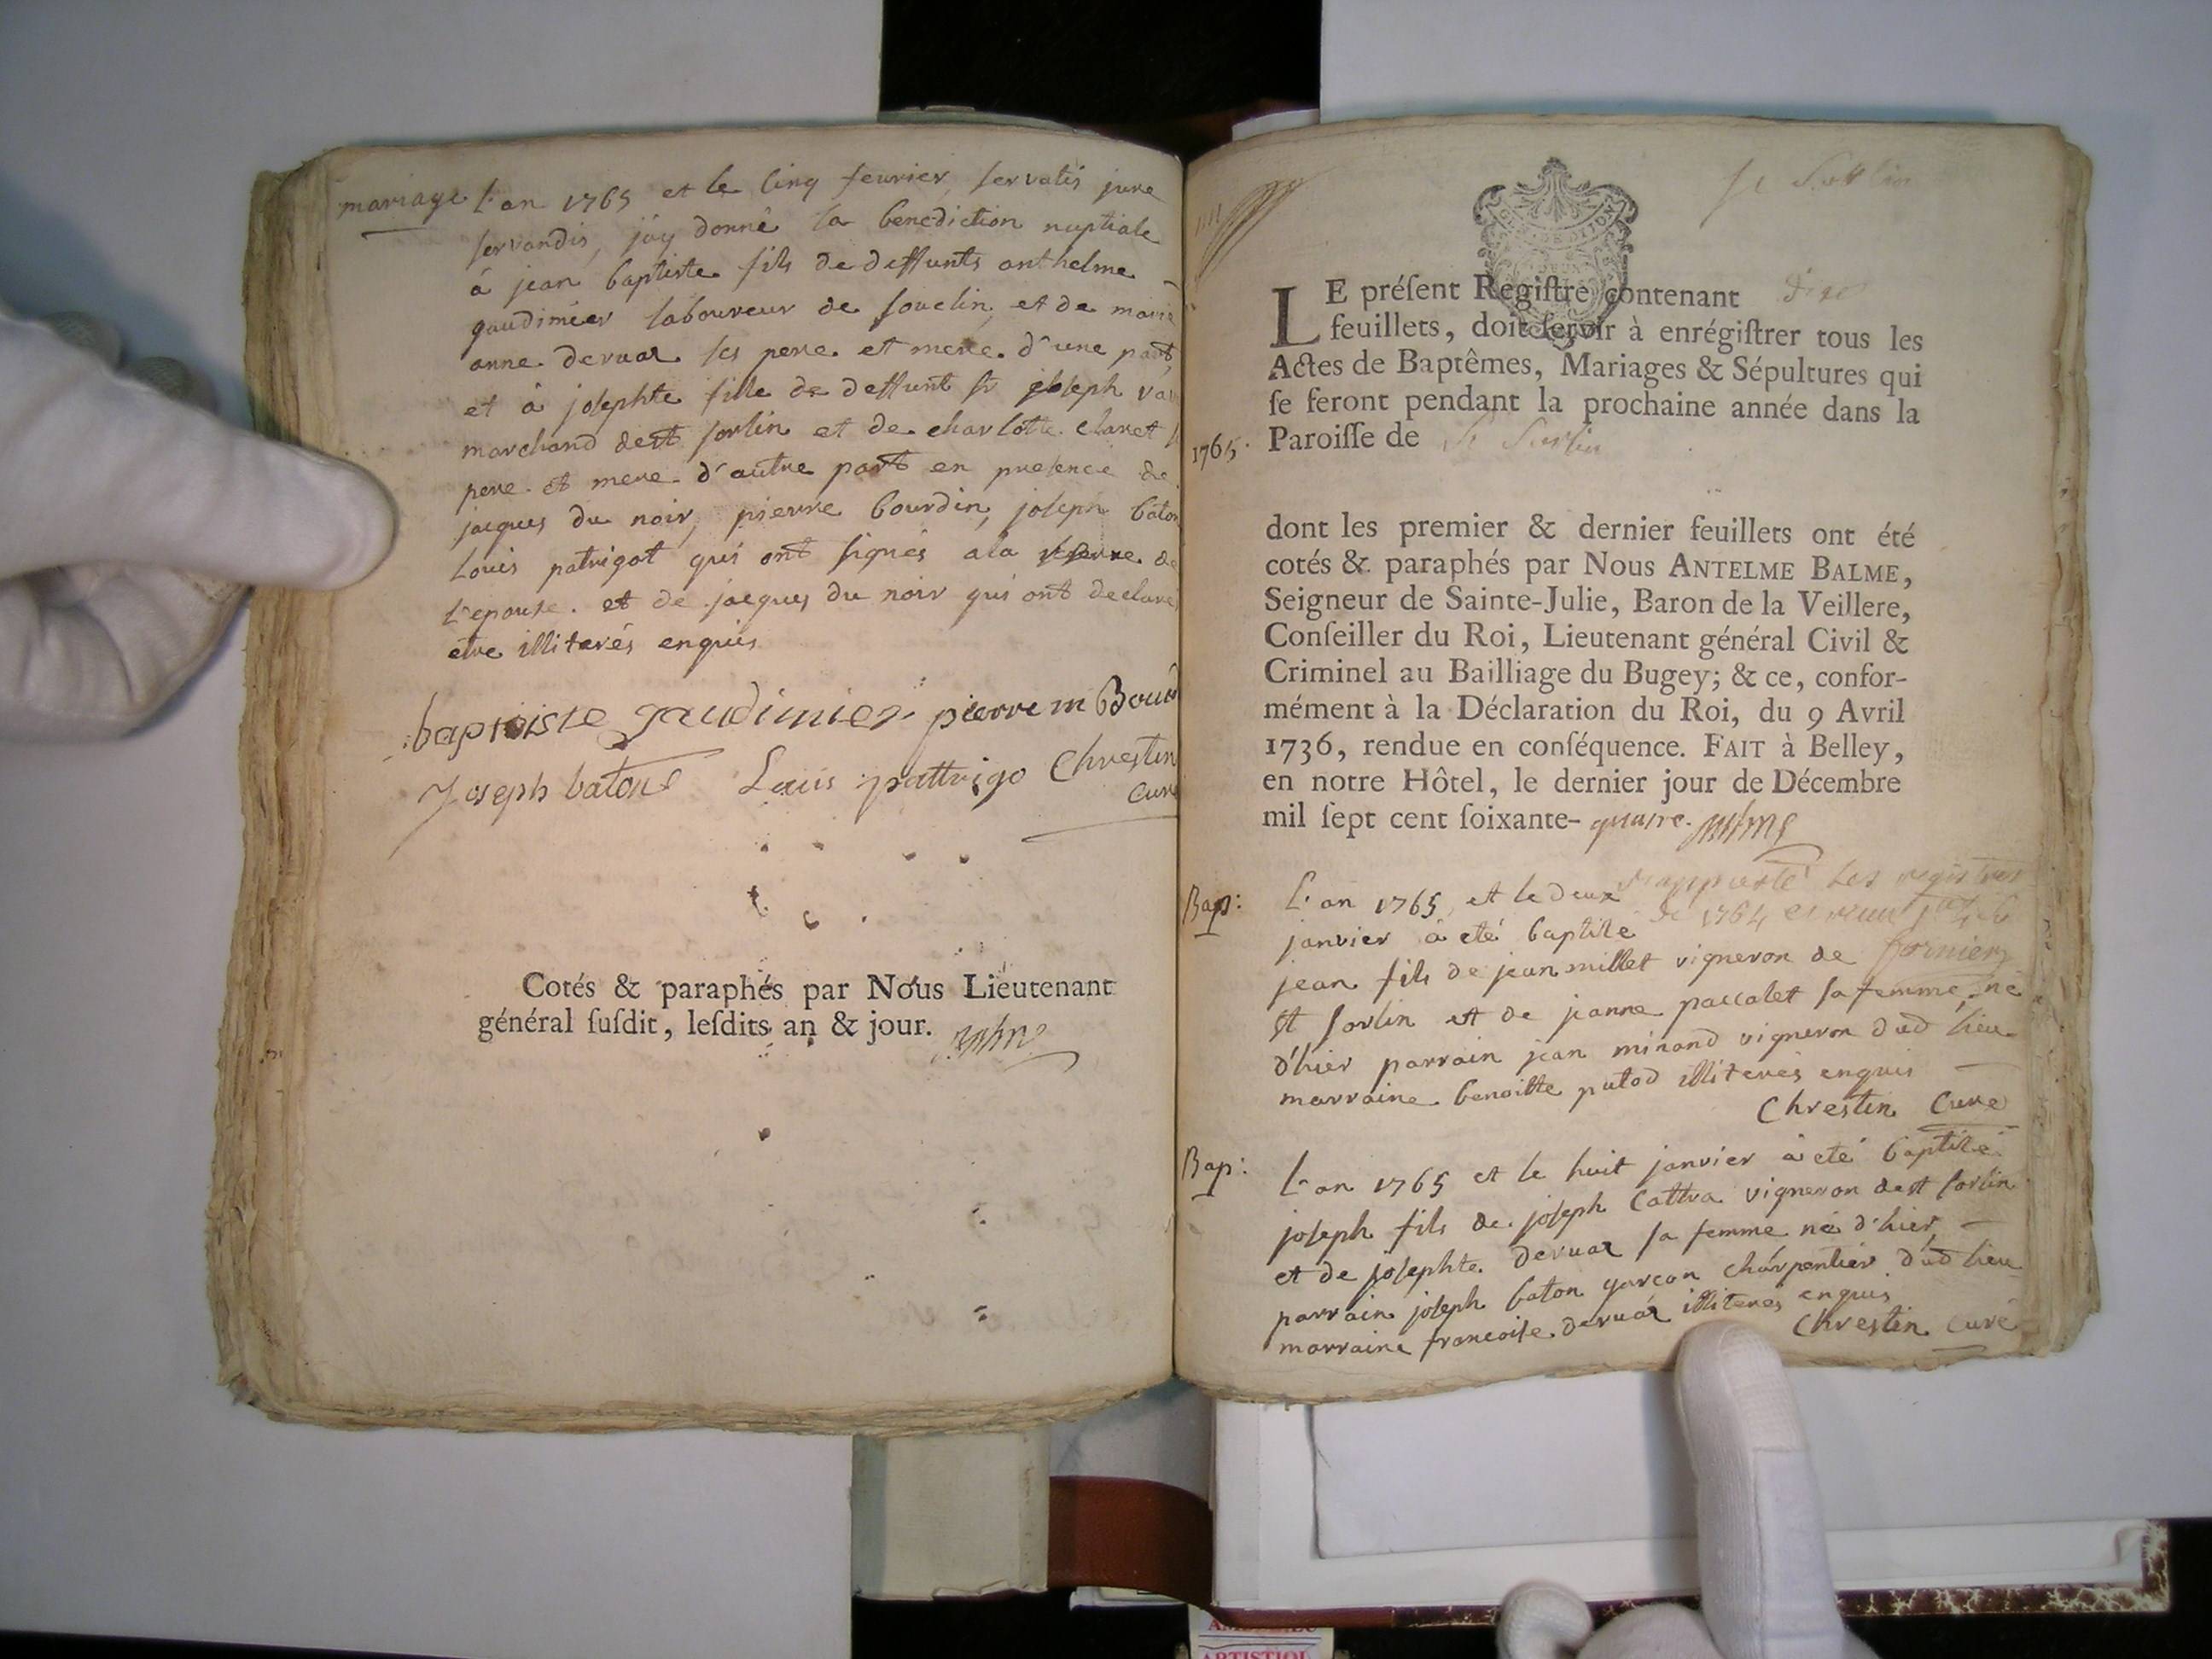 mariage L'an 1765 et le cinq feurier servatis jure
servandis, jay donné la benediction nuptiale
à jean baptiste fils de deffunts anthelme
gaudimier laboureur de souclin, et de marie
anne dervar ses pere et mere d'une part,
et à josephte fille de deffunt sr joseph
marchand de st sorlin et de charlotte claret
pere et mere d'autre part en presence de
jacques du noir, pierre bourdin, joseph baton
Louis patrigot qui ont signés a la reserve de
l'epouse et de jacques du noir qui ont declaré
etre illiterés enquis
baptiste gaudimier pierre m Bourd
Joseph baton Louis pattrigo Chrestin
Curé
Cotés & paraphés par Nous Lieutenant
général ſuſdit, leſdits an & jour. Balme
St Sorlin
LE préſent Regiſtre contenant dix
feuillets, doit ſervir à enrégiſtrer tous les
Actes de Baptêmes, Mariages & Sépultures qui
ſe feront pendant la prochaine année dans la
1765. Paroiſſe de St Sorlin
dont les premier & dernier feuillets ont été
cotés & paraphés par Nous ANTELME BALME,
Seigneur de Sainte-Julie, Baron de la Veillere,
Conſeiller du Roi, Lieutenant général Civil &
Criminel au Bailliage du Bugey; & ce, confor-
mément à la Déclaration du Roi, du 9 Avril
1736, rendue en conſéquence. FAIT à Belley,
en notre Hôtel, le dernier jour de Décembre
mil ſept cent ſoixante- quatre. Balme
rapporté les registres
de 1764
Bap: L'an 1765, et le deux
janvier à eté baptisé
jean fils de jean millet vigneron de
st sorlin et de jeanne paccalet sa femme, né
d'hier parrain jean minand vigneron dud lieu
marraine benoitte putod illiterés enquis
Chrestin Curé
Bap: L'an 1765 et le huit janvier à eté baptisé
joseph fils de joseph Cattra vigneron de st sorlin
et de josephte dervar sa femme né d'hier,
parrain joseph baton garçon chárpentier dud lieu
marraine francoise dervar illiterés enquis
Chrestin Curé